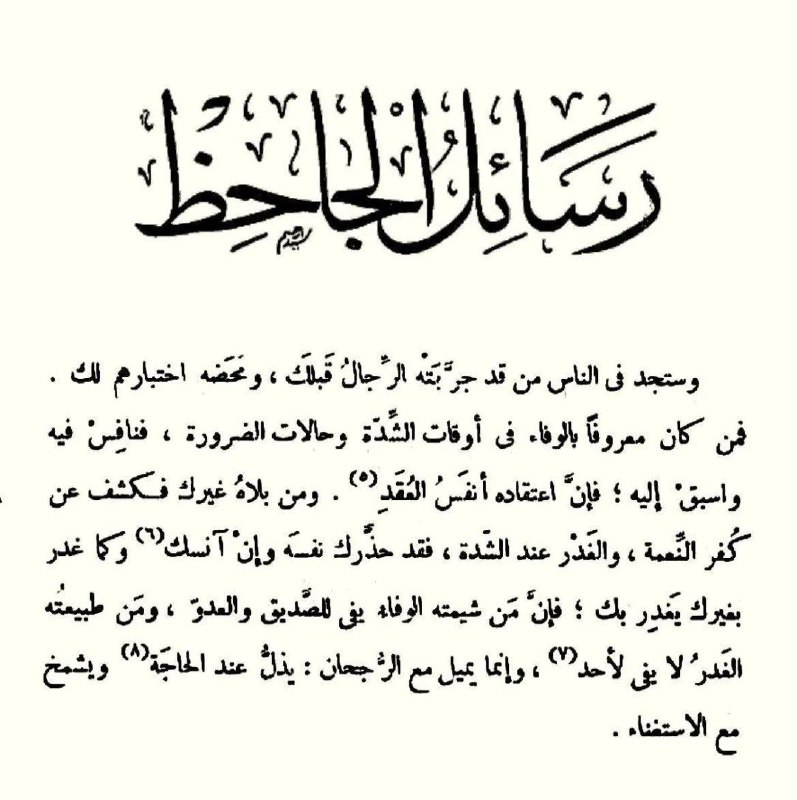 رَسَائِلُ الجَاحِظ
وستجد فى الناس من قد جرَّبَتْه الرِّجالُ قَبلَك ، ومَحَضه اختبارهم لك .
فمن كان معروفًا بالوفاء فى أوقات الشِّدّة وحالات الضرورة ، فنافِسْ فيه
واسبقْ إليه ؛ فإنَّ اعتقاده أنفَسُ العُقَدِ(٥) . ومن بلاهُ غيرك فكشف عن
كُفر النِّعمة ، والغَدْر عند الشّدة ، فقد حذَّرك نفسَه وإنْ آنسك(٦) وكما غدر
بغيرك يَغدِر بك ؛ فإنَّ مَن شيمته الوفاء يفى للصَّديق والعدوّ ، ومَن طبيعتُه
الغَدرُ لا يفى لأحد(٧) ، وإنما يميل مع الرُّجحان : يذلُّ عند الحاجَة(٨) ويشمخ
مع الاستغناء .